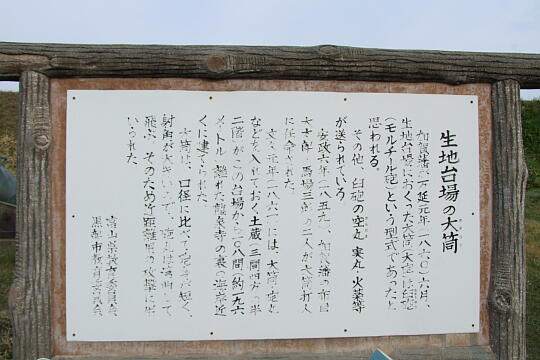 生地台場の大筒
加賀藩が万延元年(一八六〇)六月、
生地台場におくった大筒(大砲)は臼砲
(モルチール砲)という型式であったと
思われる。
その他、臼砲の空丸 実丸 火薬等
が送られている
安政六年(一八五九)、加賀藩の
馬場三郎の二人が大筒打人
に任命された。
文久元年(一八六一)には、大筒
などを入れておく土蔵(三間四方)の半
二階がこの台場から一〇八間(約一九六
メートル)離れた龍泉寺の裏の海岸近
くに建てられた
大筒は、口径に比べて砲身が短く、
射角が大きいので、砲丸は湾曲して
飛ぶ そのため近距離用の攻撃に用
いられた
富山県教育委員会
黒部市教育委員会